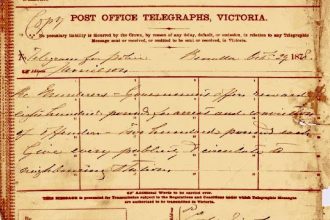 (Copy)
POST OFFICE TELEGRAPHS, VICTORIA.
No pecuniary liability is incurred by the Crown, by reason of any delay, default, or omission, in relation to any Telegraphic
Message sent or received, or omitted to be sent or received, in Victoria.
Telegram for police Benalla Oct. 29 1878
Jamieson
Murderers — Government offer reward
eight hundred pounds for arrest and conviction
of offenders — two hundred pounds each
Give every publicity & circulate to
neighbouring stations
Additional Words to be carried over.
THIS MESSAGE is presented for Transmission subject to the Regulations and Conditions under which Telegraphic Messages
are authorized to be transmitted in Victoria.